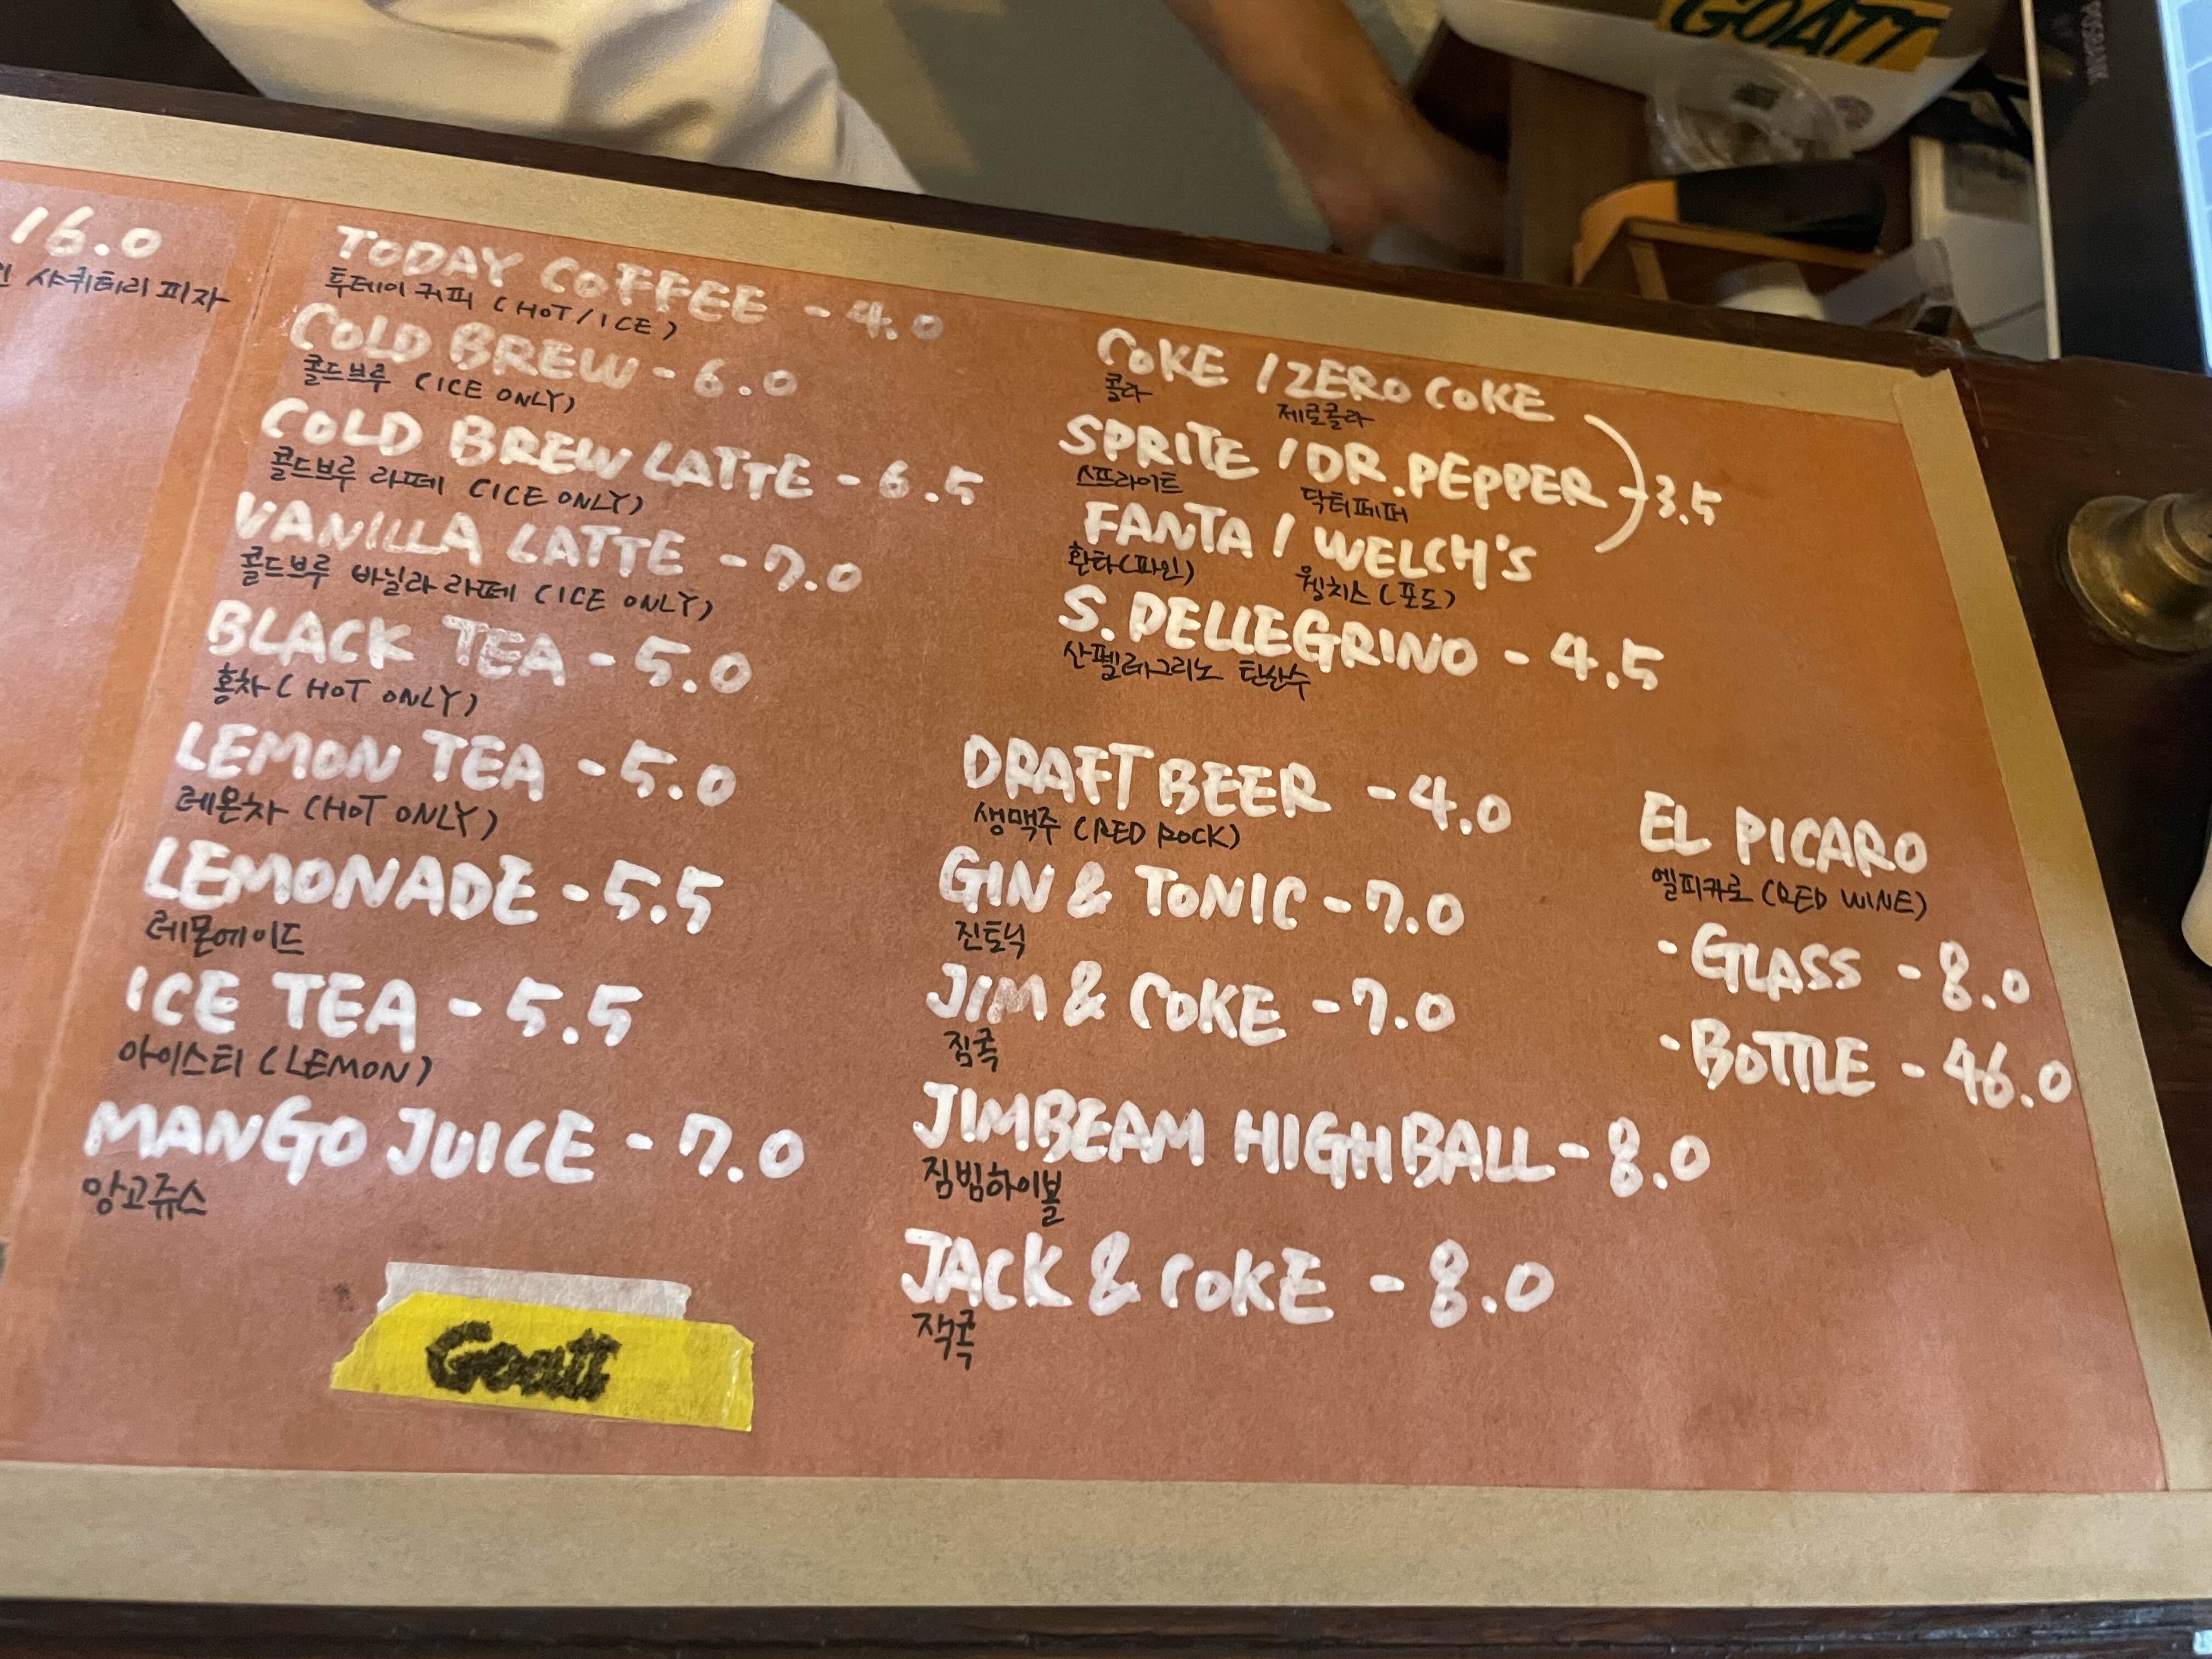 GOATT
16.0
샤퀴테리 피자
TODAY COFFEE - 4.0
투데이 커피 (HOT/ICE)
COLD BREW - 6.0
콜드브루 (ICE ONLY)
COLD BREW LATTE - 6.5
콜드브루 라떼 (ICE ONLY)
VANILLA LATTE - 7.0
콜드브루 바닐라 라떼 (ICE ONLY)
BLACK TEA - 5.0
홍차 (HOT ONLY)
LEMON TEA - 5.0
레몬차 (HOT ONLY)
LEMONADE - 5.5
레몬에이드
ICE TEA - 5.5
아이스티 (LEMON)
MANGO JUICE - 7.0
망고쥬스
Goatt
COKE / ZERO COKE
콜라 제로콜라
SPRITE / DR. PEPPER - 3.5
스프라이트 닥터페퍼
FANTA / WELCH'S
환타(파인) 웰치스(포도)
S. PELLEGRINO - 4.5
산펠레그리노 탄산수
DRAFT BEER - 4.0
생맥주 (RED ROCK)
GIN & TONIC - 7.0
진토닉
JIM & COKE - 7.0
짐콕
JIMBEAM HIGHBALL - 8.0
짐빔하이볼
JACK & COKE - 8.0
잭콕
EL PICARO
엘피카로 (RED WINE)
- GLASS - 8.0
- BOTTLE - 46.0